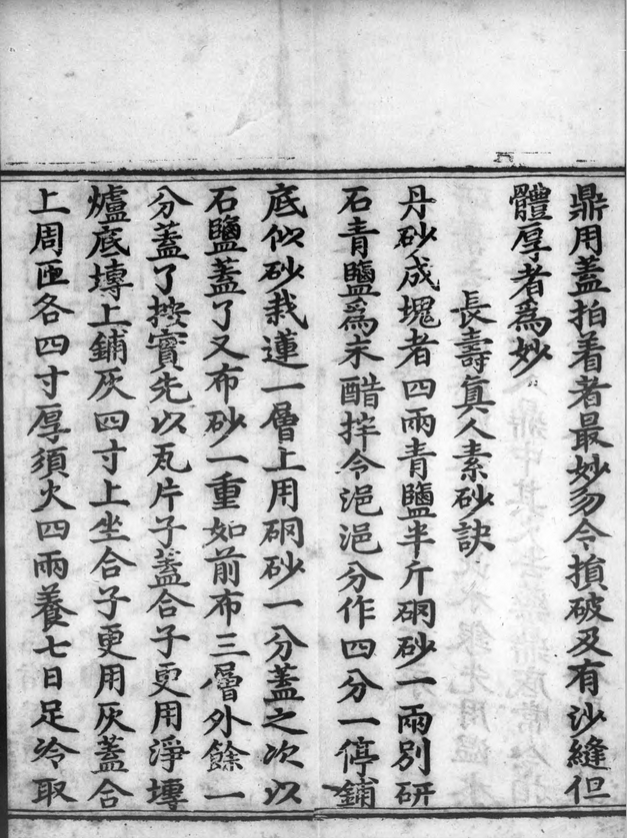 鼎用蓋拍着者最妙勿令損破及有沙縫但
體厚者為妙
長壽真人素砂訣
丹砂成塊者四兩青鹽半斤硇砂一兩別研
石青鹽為末醋拌令浥浥分作四分一停鋪
底似砂栽蓮一層上用硇砂一分蓋之次以
石鹽蓋了又布砂一重如前布三層外餘一
分蓋了按實先以瓦片子蓋合子更用淨塼
爐底塼上鋪灰四寸上坐合子更用灰蓋合
上周匝各四寸厚須火四兩養七日足冷取